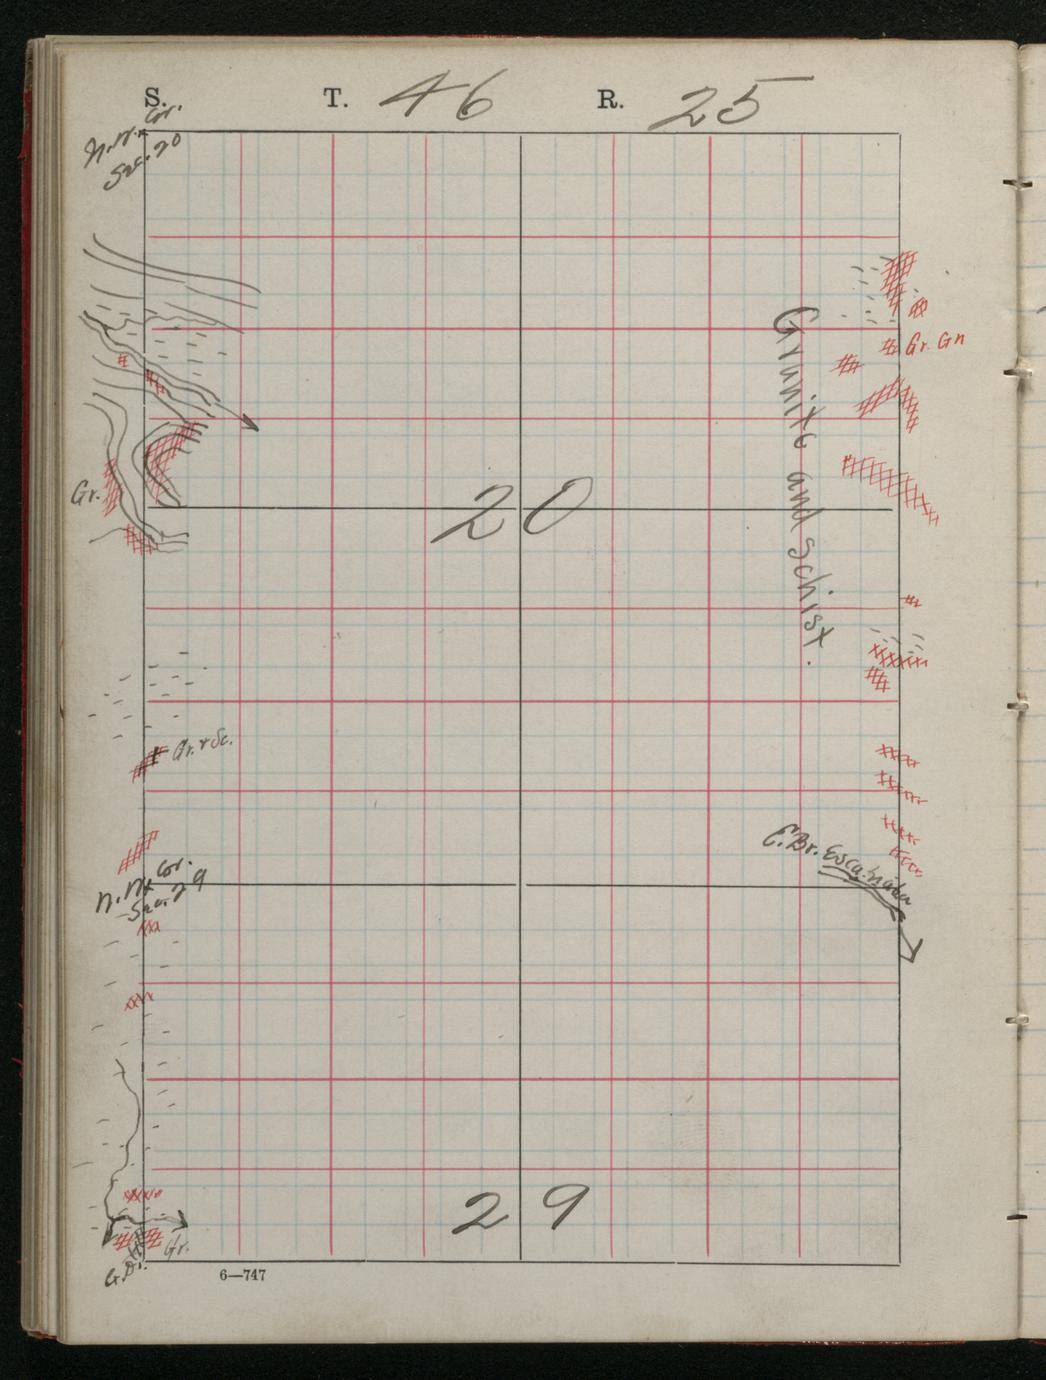 S. T. 46 R. 25
N.W. Cor.
Sec. 20
Gr. Gn
Granite and schist.
Gr.
20
Gr. & Sc.
E. Br. Escanaba
N.W. Cor.
Sec. 29
29
Gr.
G.Di.
6—747